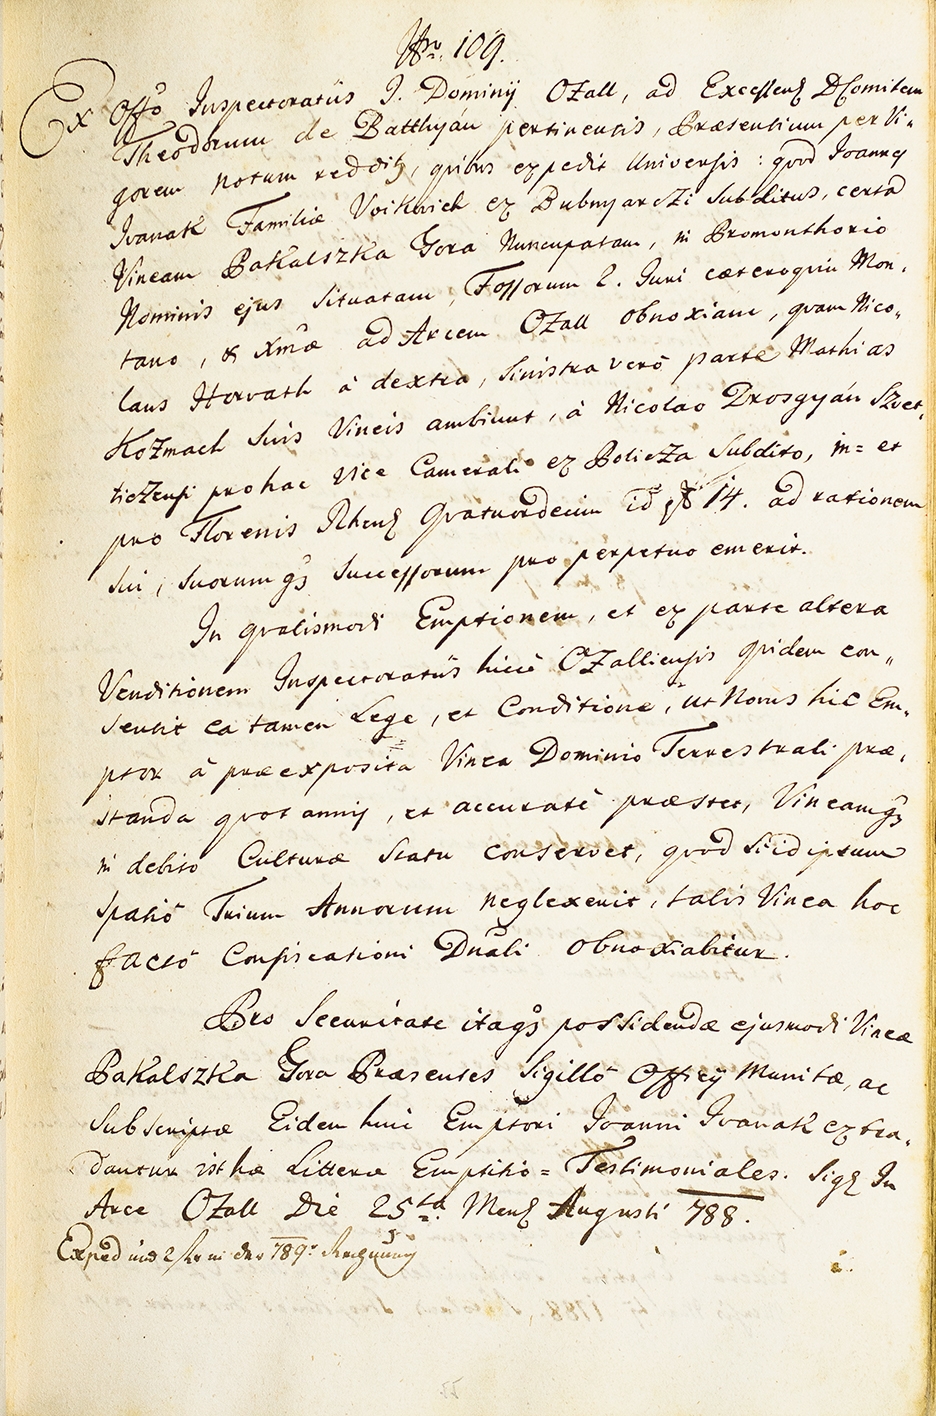 Nro. 109.
Ex Offo Inspectoratûs I. Dominij Ozall, ad Excellenz D Comitem
Theodorum de Batthyán pertinentis, Præsentium per Vi„
gorem notum redditz, quibus expedit Universis: quod Joannes
Ivanak Familiæ Voikovich ex Bubnyarczi Subditus, certã
Vineam Bakalszka Gora Nuncupatam, in Promonthorio
Nominis ejus Situatam, Fossorum 2. Juri cæteroquin Mon„
tano, & Xmæ ad Arcem Ozall obnoxiam, quam Nico„
laus Horvath à dextra, Sinistra verò parte Mathias
Kozmach Suis Vineis ambiunt, à Nicolao Drosgyán Szvet„
ticzensi pro hac Vice Camerali ex Policza Subdito, in= et
pro Florenis Rhenz Quatuordecim id est f 14. ad rationem
Sui, Suorumqz Successorum pro perpetuo emerit.
In qualismodi Emptionem, et ex parte altera
Venditionem Inspectoratûs hicce Ozalliensis quidem con„
sensit ea tamen Lege, et Conditione, ut Novus hic Em„
ptor à præexposita Vinea Dominio Terrestrali præ„
standa quot annis, et accuratè præstet, Vineamqz
in debito Culturæ Statu conservet, quod si id ipsum
Spatiô Trium Annorum neglexerit, talis Vinea hoc
factô Confiscationi Dnali obnoxiabitur.
Pro Securitate itaqz possidendæ ejusmodi Vineæ
Bakalszka Gora Præsentes Sigillô Officij Munitæ, ac
Subscriptæ Eidem huic Emptori Joanni Ivanak extra„
dantur isthæ Litteræ Emptitio = Testimoniales. Sigz In
Arce Ozall Die 25ta Menz Augusti 788.
Exped in der 789r Rechnung